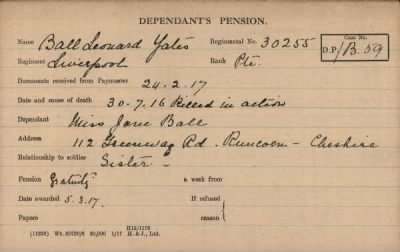 DEPENDANT'S PENSION.
Name Ball Leonard Yates Regimental No. 30255 Case No.
Regiment Liverpool Rank Pte. D.P/B.59
Documents received from Paymaster 24.2.17
Date and cause of death 30.7.16 Killed in action
Dependant Miss Jane Ball
Address 112 Greenway Rd. Runcorn - Cheshire
Relationship to soldier Sister -
Pension Gratuity a week from
Date awarded 5.3.17. If refused
Papers reason
H15/1179
(11338) Wt. 30720/8 50,000 1/17 H. & J., Ltd.